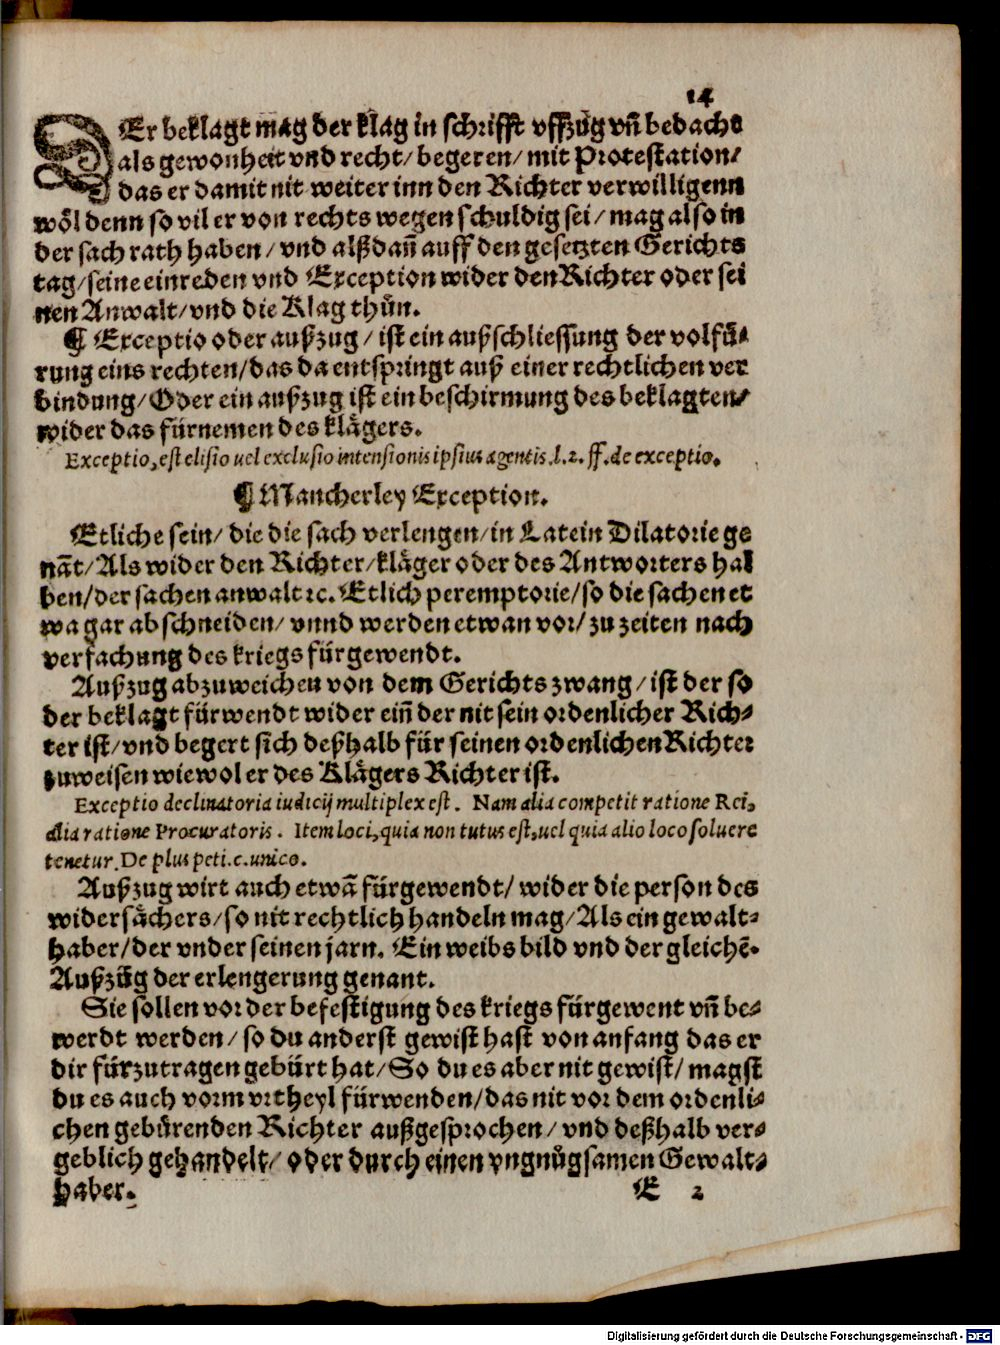 14
DEr beklagt mag der klag in schrifft vffzůg vñ bedacht
als gewonheit vnd recht/ begeren/ mit Protestation/
das er damit nit weiter inn den Richter verwilligenn
wöl denn so vil er von rechts wegen schuldig sei/ mag also in
der sach rath haben/ vnd alßdañ auff den gesetzten Gerichts
tag/ seine einreden vnd Exception wider den Richter oder sei
nen Anwalt/ vnd die Klag thůn.
¶ Exceptio oder außzug/ ist ein außschliessung der volfü⸗
rung eins rechten/ das da entspringt auß einer rechtlichen ver
bindung/ Oder ein außzug ist ein beschirmung des beklagten/
wider das fürnemen des klägers.
Exceptio, est elisio uel exclusio intensionis ipsius agentis. l. 2. ff. de exceptio.
¶ Mancherley Exception.
Etliche sein/ die die sach verlengen/ in Latein Dilatorie ge
nãt/ Als wider den Richter/ kläger oder des Antworters hal
ben/ der sachen anwalt ꝛc. Etlich peremptorie/ so die sachen et
wa gar abschneiden/ vnnd werden etwan vor/ zu zeiten nach
verfachung des kriegs fürgewendt.
Außzug abzuweichen von dem Gerichts zwang/ ist der so
der beklagt fürwendt wider eiñ der nit sein ordenlicher Rich⸗
ter ist/ vnd begert sich deßhalb für seinen ordenlichen Richter
zuweisen wiewol er des Klägers Richter ist.
Exceptio declinatoria iudicij multiplex est. Nam alia competit ratione Rei,
alia ratione Procuratoris. Item loci, quia non tutus est, uel quia alio loco soluere
tenetur. De plus peti. c. unico.
Außzug wirt auch etwã fürgewendt/ wider die person des
widersächers/ so nit rechtlich handeln mag/ Als ein gewalt⸗
haber/ der vnder seinen jarn. Ein weibs bild vnd der gleichẽ.
Außzüg der erlengerung genant.
Sie sollen vor der befestigung des kriegs fürgewent vñ be⸗
werdt werden/ so du anderst gewist hast von anfang das er
dir fürzutragen gebürt hat/ So du es aber nit gewist/ magst
du es auch vorm vrtheyl fürwenden/ das nit vor dem ordenli⸗
chen gebürenden Richter außgesprochen/ vnd deßhalb ver⸗
geblich gehandelt/ oder durch einen vngnůgsamen Gewalt⸗
haber.
E 2
Digitalisierung gefördert durch die Deutsche Forschungsgemeinschaft - DFG